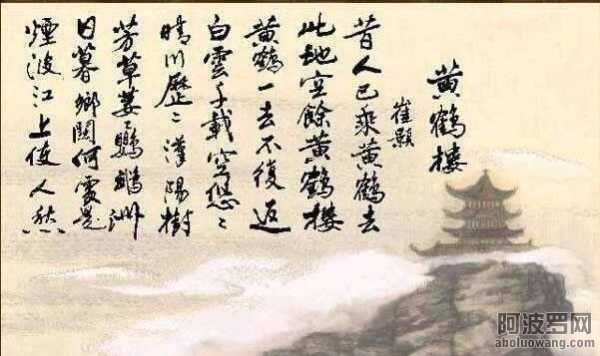 黄鹤樓
崔顥
昔人已乘黄鹤去
此地空餘黄鹤樓
黄鹤一去不復返
白雲千載空悠々
晴川歷々漢陽樹
芳草萋々鸚鵡洲
日暮鄉關何處是
煙波江上使人愁
阿波罗网
aboluowang.com